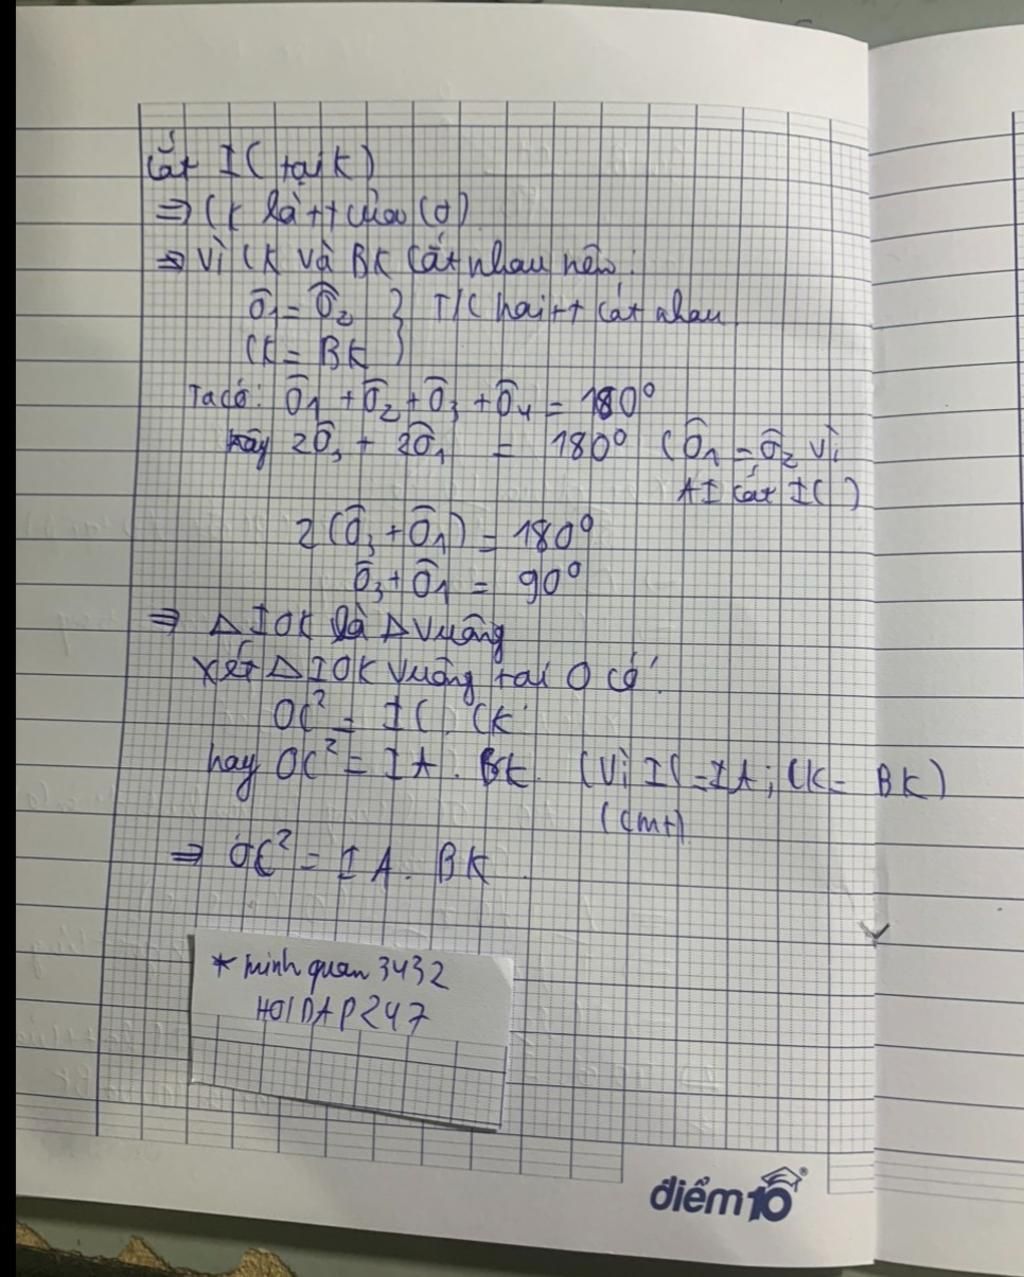 cắt IC tại K)
⇒ CK là tt của (O)
⇒ Vì CK và BK cắt nhau nên:
Ô1 = Ô2 } T/C hai tt cắt nhau
CK = BK
Ta có: Ô1 + Ô2 + Ô3 + Ô4 = 180°
hay 2Ô3 + 2Ô1 = 180° (Ô1 = Ô2 vì
AI cắt IC)
2(Ô3 + Ô1) = 180°
Ô3 + Ô1 = 90°
⇒ ΔIOK là Δ Vuông
Xét ΔIOK Vuông tại O có:
OC² = IC. CK
hay OC² = IA. BK (Vì IC = IA; CK = BK)
(cmt)
⇒ OC² = IA. BK.
* minhquan3432
HOIDAP247
điểm10